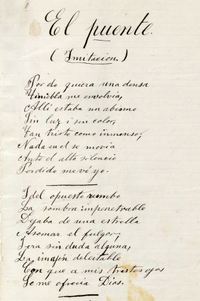 El puente.
(Imitacion.)
Por do quiera una densa
Tiniebla me envolvia,
Alli estaba un abismo
Sin luz i sin color,
Tan triste como inmenso;
Nada en el se movia
Ante el alto silencio
Perdido me vi yo.
I del opuesto rumbo
La sombra impenetrable
Dejaba de una estrella
Asomar el fulgor;
Era sin duda alguna,
La imajen delectable
Con que a mis tristes ojos
Se me ofrecia Dios.